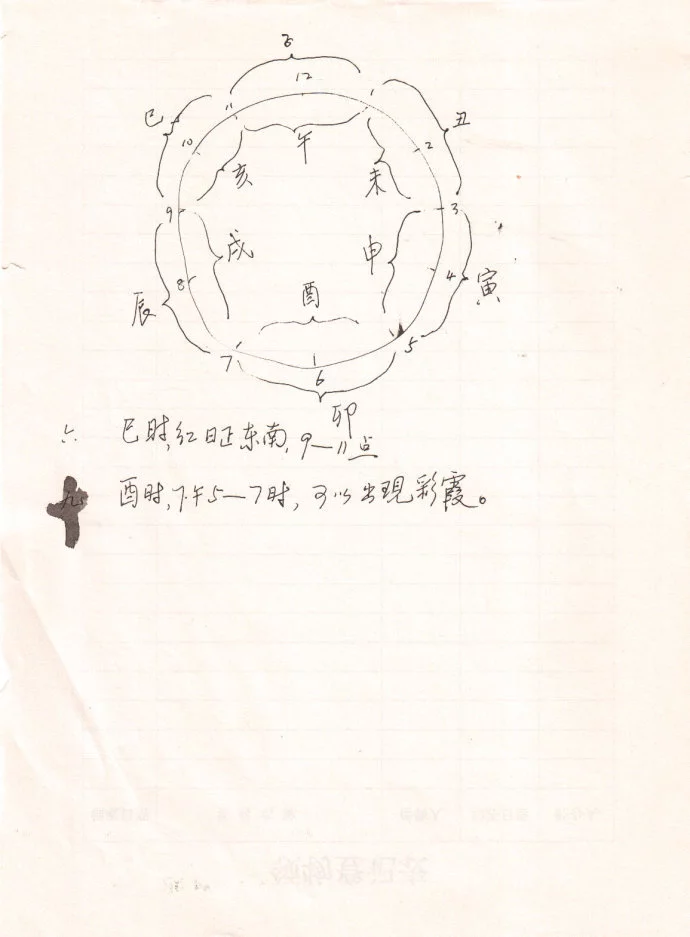 子
12
11 1
巳 丑
午
10 2
亥 未
9 3
戌 申
8 4
辰 酉 寅
7 5
6
卯
六 巳时,红日正东南,9—11点
九 酉时,下午5—7时,可以出現彩霞。